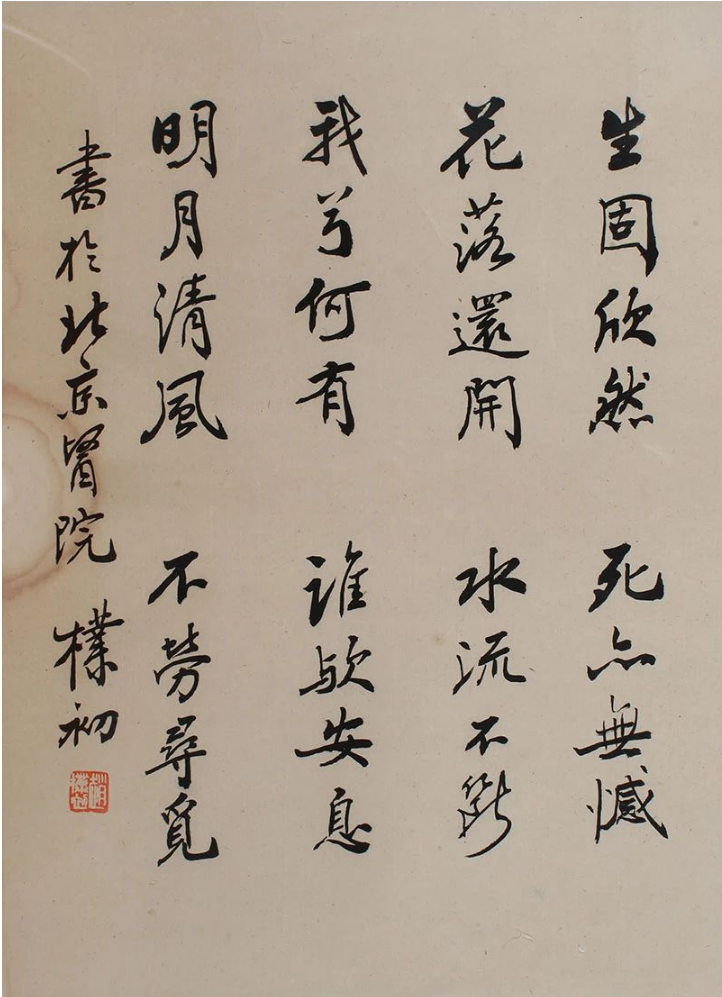 生固欣然 死亦無憾
花落還開 水流不斷
我兮何有 誰歟安息
明月清風 不勞尋覓
書於北京醫院 樸初
趙樸初